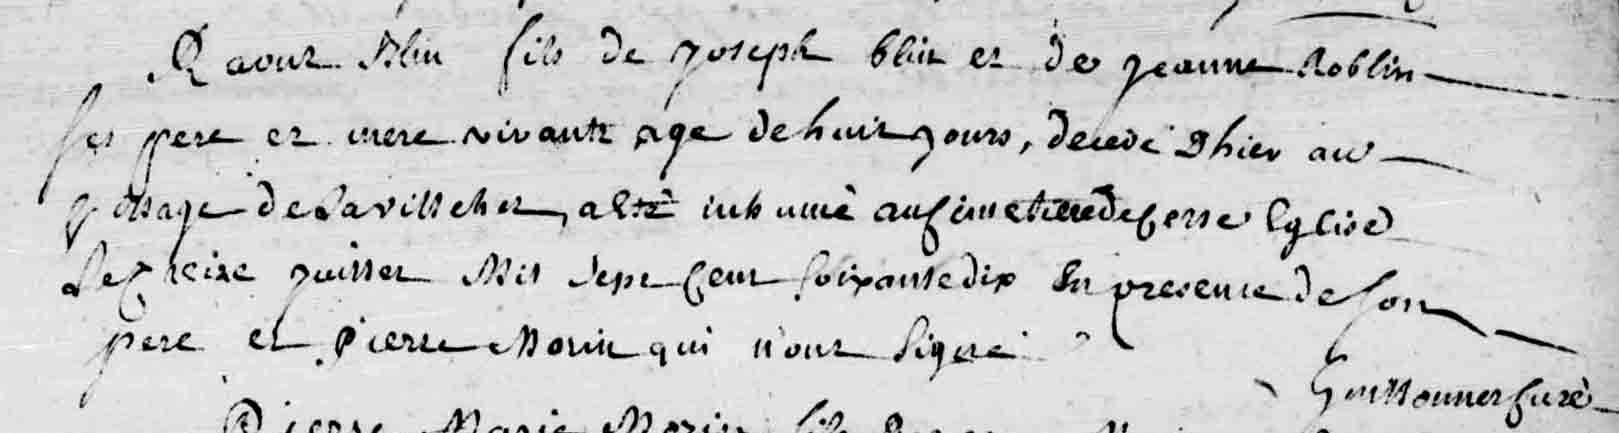 Raoul Blin fils de Joseph blin et de jeanne Roblin
ses pere et mere vivants age de huit jours, decedé d'hier au
village de La ville , a été inhumé au cimetiere de cette Eglise
Le seize juillet Mil sept cent soixante dix En presence de son
pere et Pierre Morin qui n'ont signé
Guillonner curé
Pierre Marie Morin fils